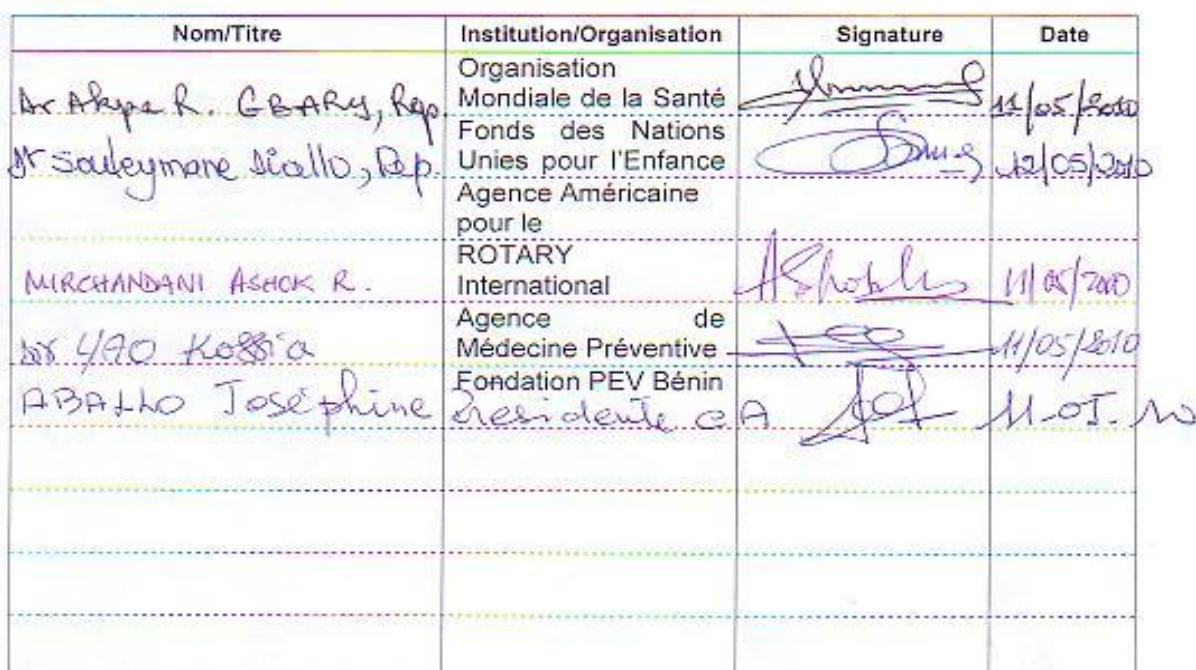 Nom/Titre Institution/Organisation Signature Date
Dr Akpa R. GBARY, Rep. Organisation Mondiale de la Santé 11/05/2010
Dr Souleymane Diallo, Rep. Fonds des Nations Unies pour l'Enfance 12/05/2010
Agence Américaine pour le
MIRCHANDANI ASHOK R. ROTARY International 11/05/2010
Dr YAO Koffia Agence de Médecine Préventive 11/05/2010
ABALLO Joséphine Fondation PEV Bénin Présidente CA 11-05-10